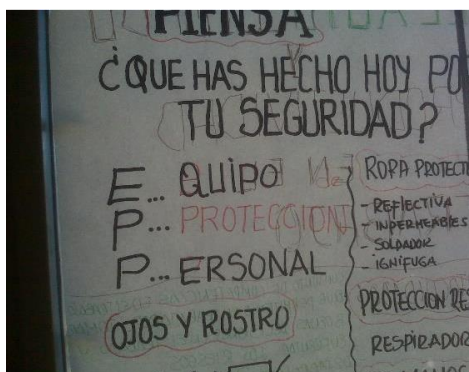 PIENSA
¿QUE HAS HECHO HOY PO
TU SEGURIDAD?
E... QUIPO de
P... PROTECCION
P... ERSONAL
OJOS Y ROSTRO
ROPA PROTECT
- REFLECTIVA
- INPERMEABLES
- SOLDADOR
- IGNÍFUGA
PROTECCION RES
RESPIRADOR